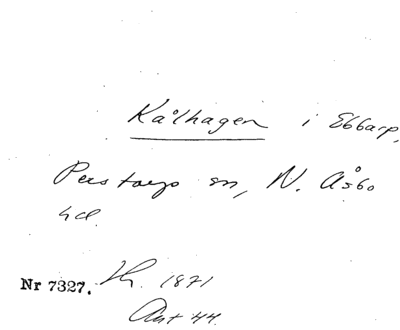 Kålhagen i Ebbarp,
Perstorps sn, N. Åsbo
hd.
Nr 7327. 1871
Ant 44.